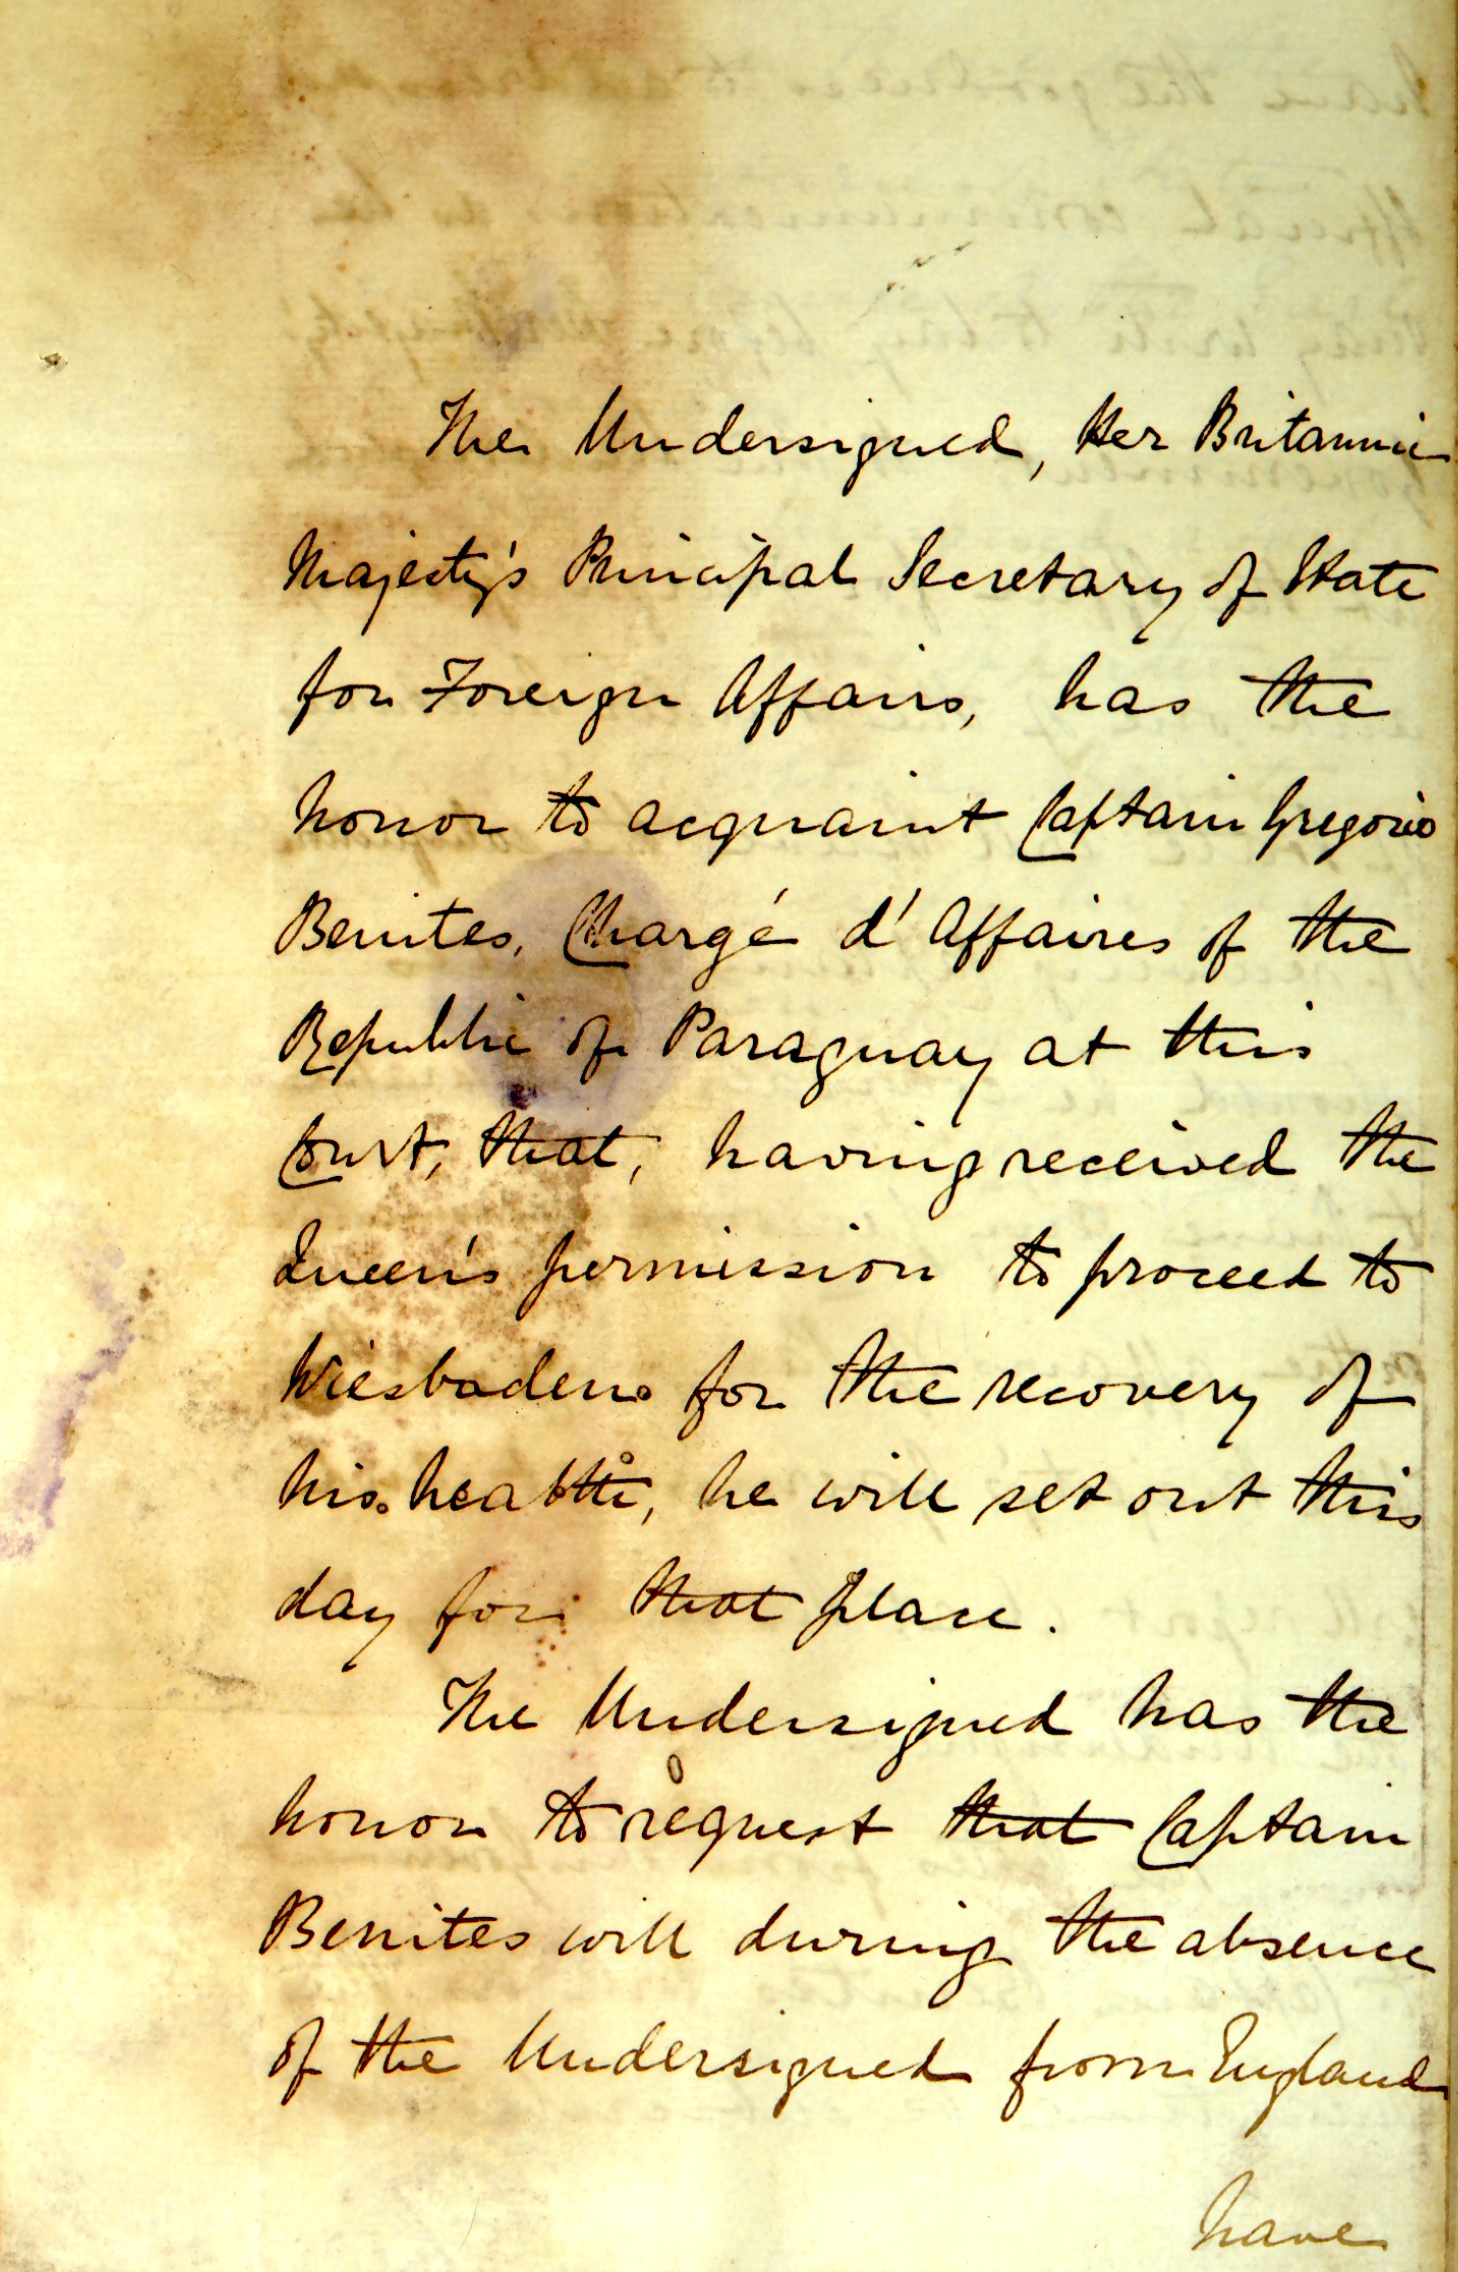 The Undersigned, Her Britannic
Majesty's Principal Secretary of State
for Foreign Affairs, has the
honor to acquaint Captain Gregorio
Benites, Chargé d'Affaires of the
Republic of Paraguay at this
Court, that, having received the
Queen's permission to proceed to
Wiesbaden for the recovery of
his health, he will set out this
day for that place.
The Undersigned has the
honor to request that Captain
Benites will during the absence
of the Undersigned from England
have